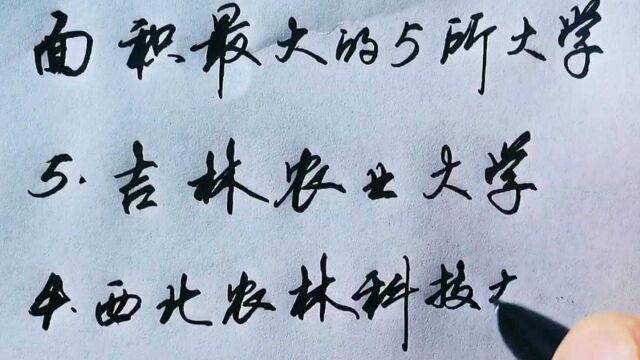 面积最大的5所大学
5.吉林农业大学
4.西北农林科技大